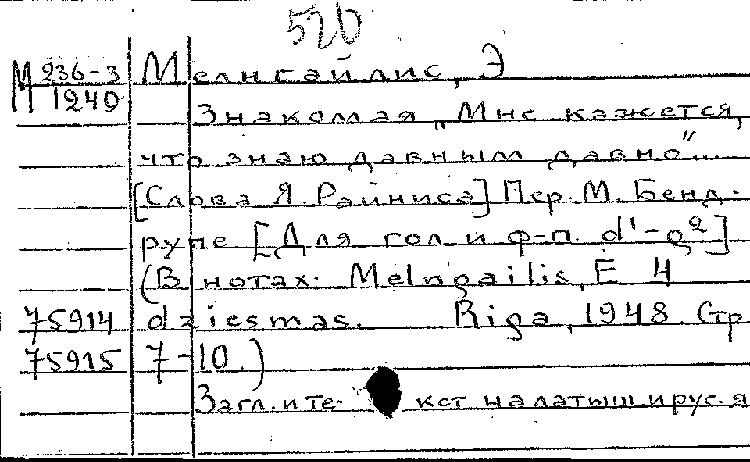 520
М 236-3 Мелнгайлис, Э
1240 Знакомая „Мне кажется,
что знаю давным давно"...
[Слова Я. Райниса] Пер. М. Бенд-
рупе [Для гол. и ф-п. d¹-g²]
(В нотах: Melngailis, E 4
75914 dziesmas. Riga, 1948. Стр
75915 7-10.)
Загл. и те- кст на латыш и рус. я